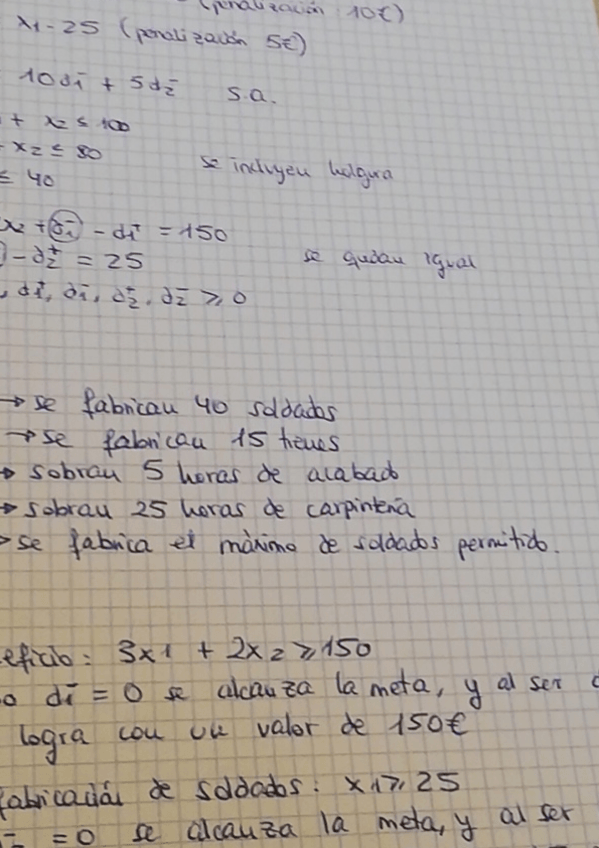 (penalización 10€)
x1 - 25 (penalización 5€)
10d1⁻ + 5d2⁻ s.a.
+ x2 ≤ 100
x2 ≤ 80
se incluyen holgura
≤ 40
x2 + d1⁻ - d1⁺ = 150
- d2⁺ = 25
se quedan igual
, d1⁺, d1⁻, d2⁺, d2⁻ ≥ 0
→ se fabrican 40 soldados
→ se fabrican 15 trenes
→ sobran 5 horas de acabado
→ sobran 25 horas de carpintería
→ se fabrica el máximo de soldados permitido.
eficio: 3x1 + 2x2 ≥ 150
o d1⁻ = 0 se alcanza la meta, y al ser
logra con un valor de 150€
fabricación de soldados: x1 ≥ 25
= 0 se alcanza la meta, y al ser